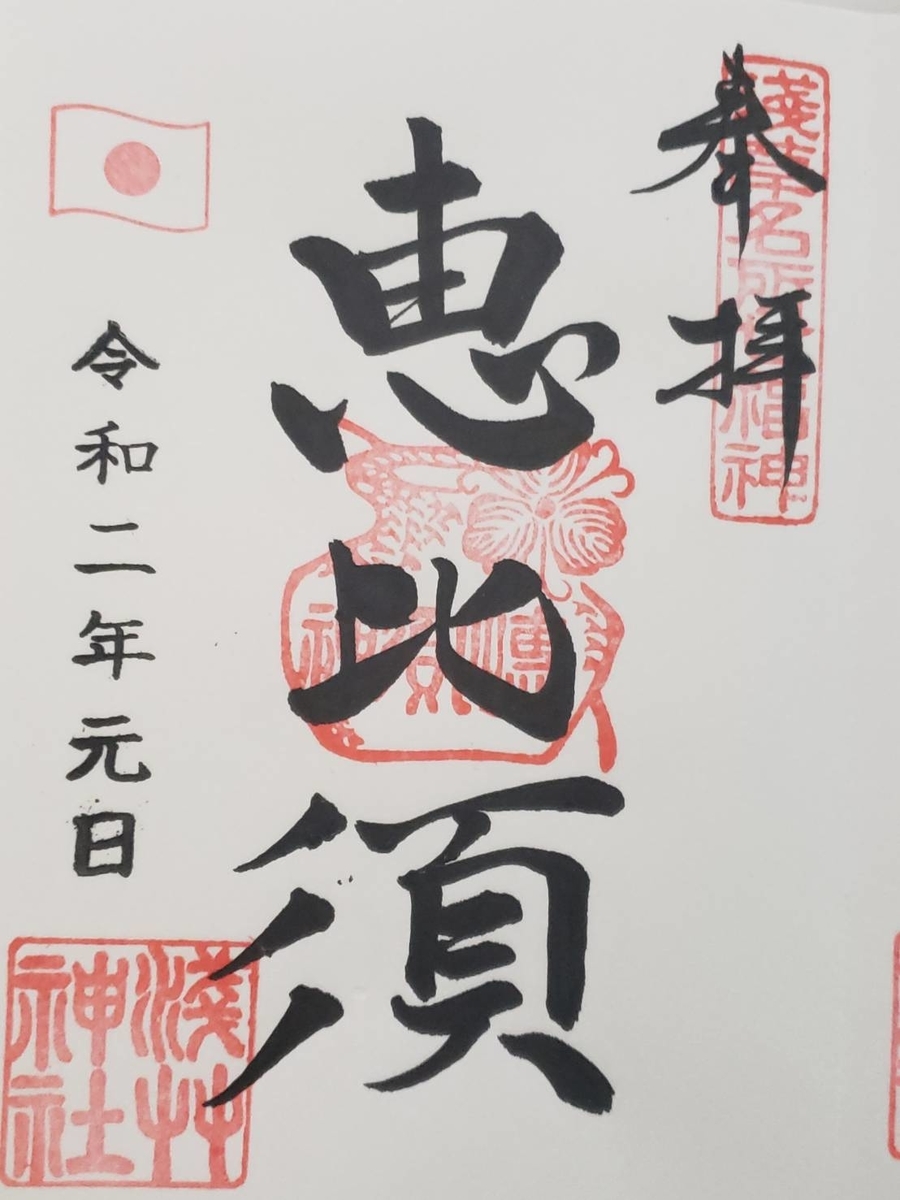 奉拝
淺草名所七福神
恵比須
令和二年元日
淺艸神社